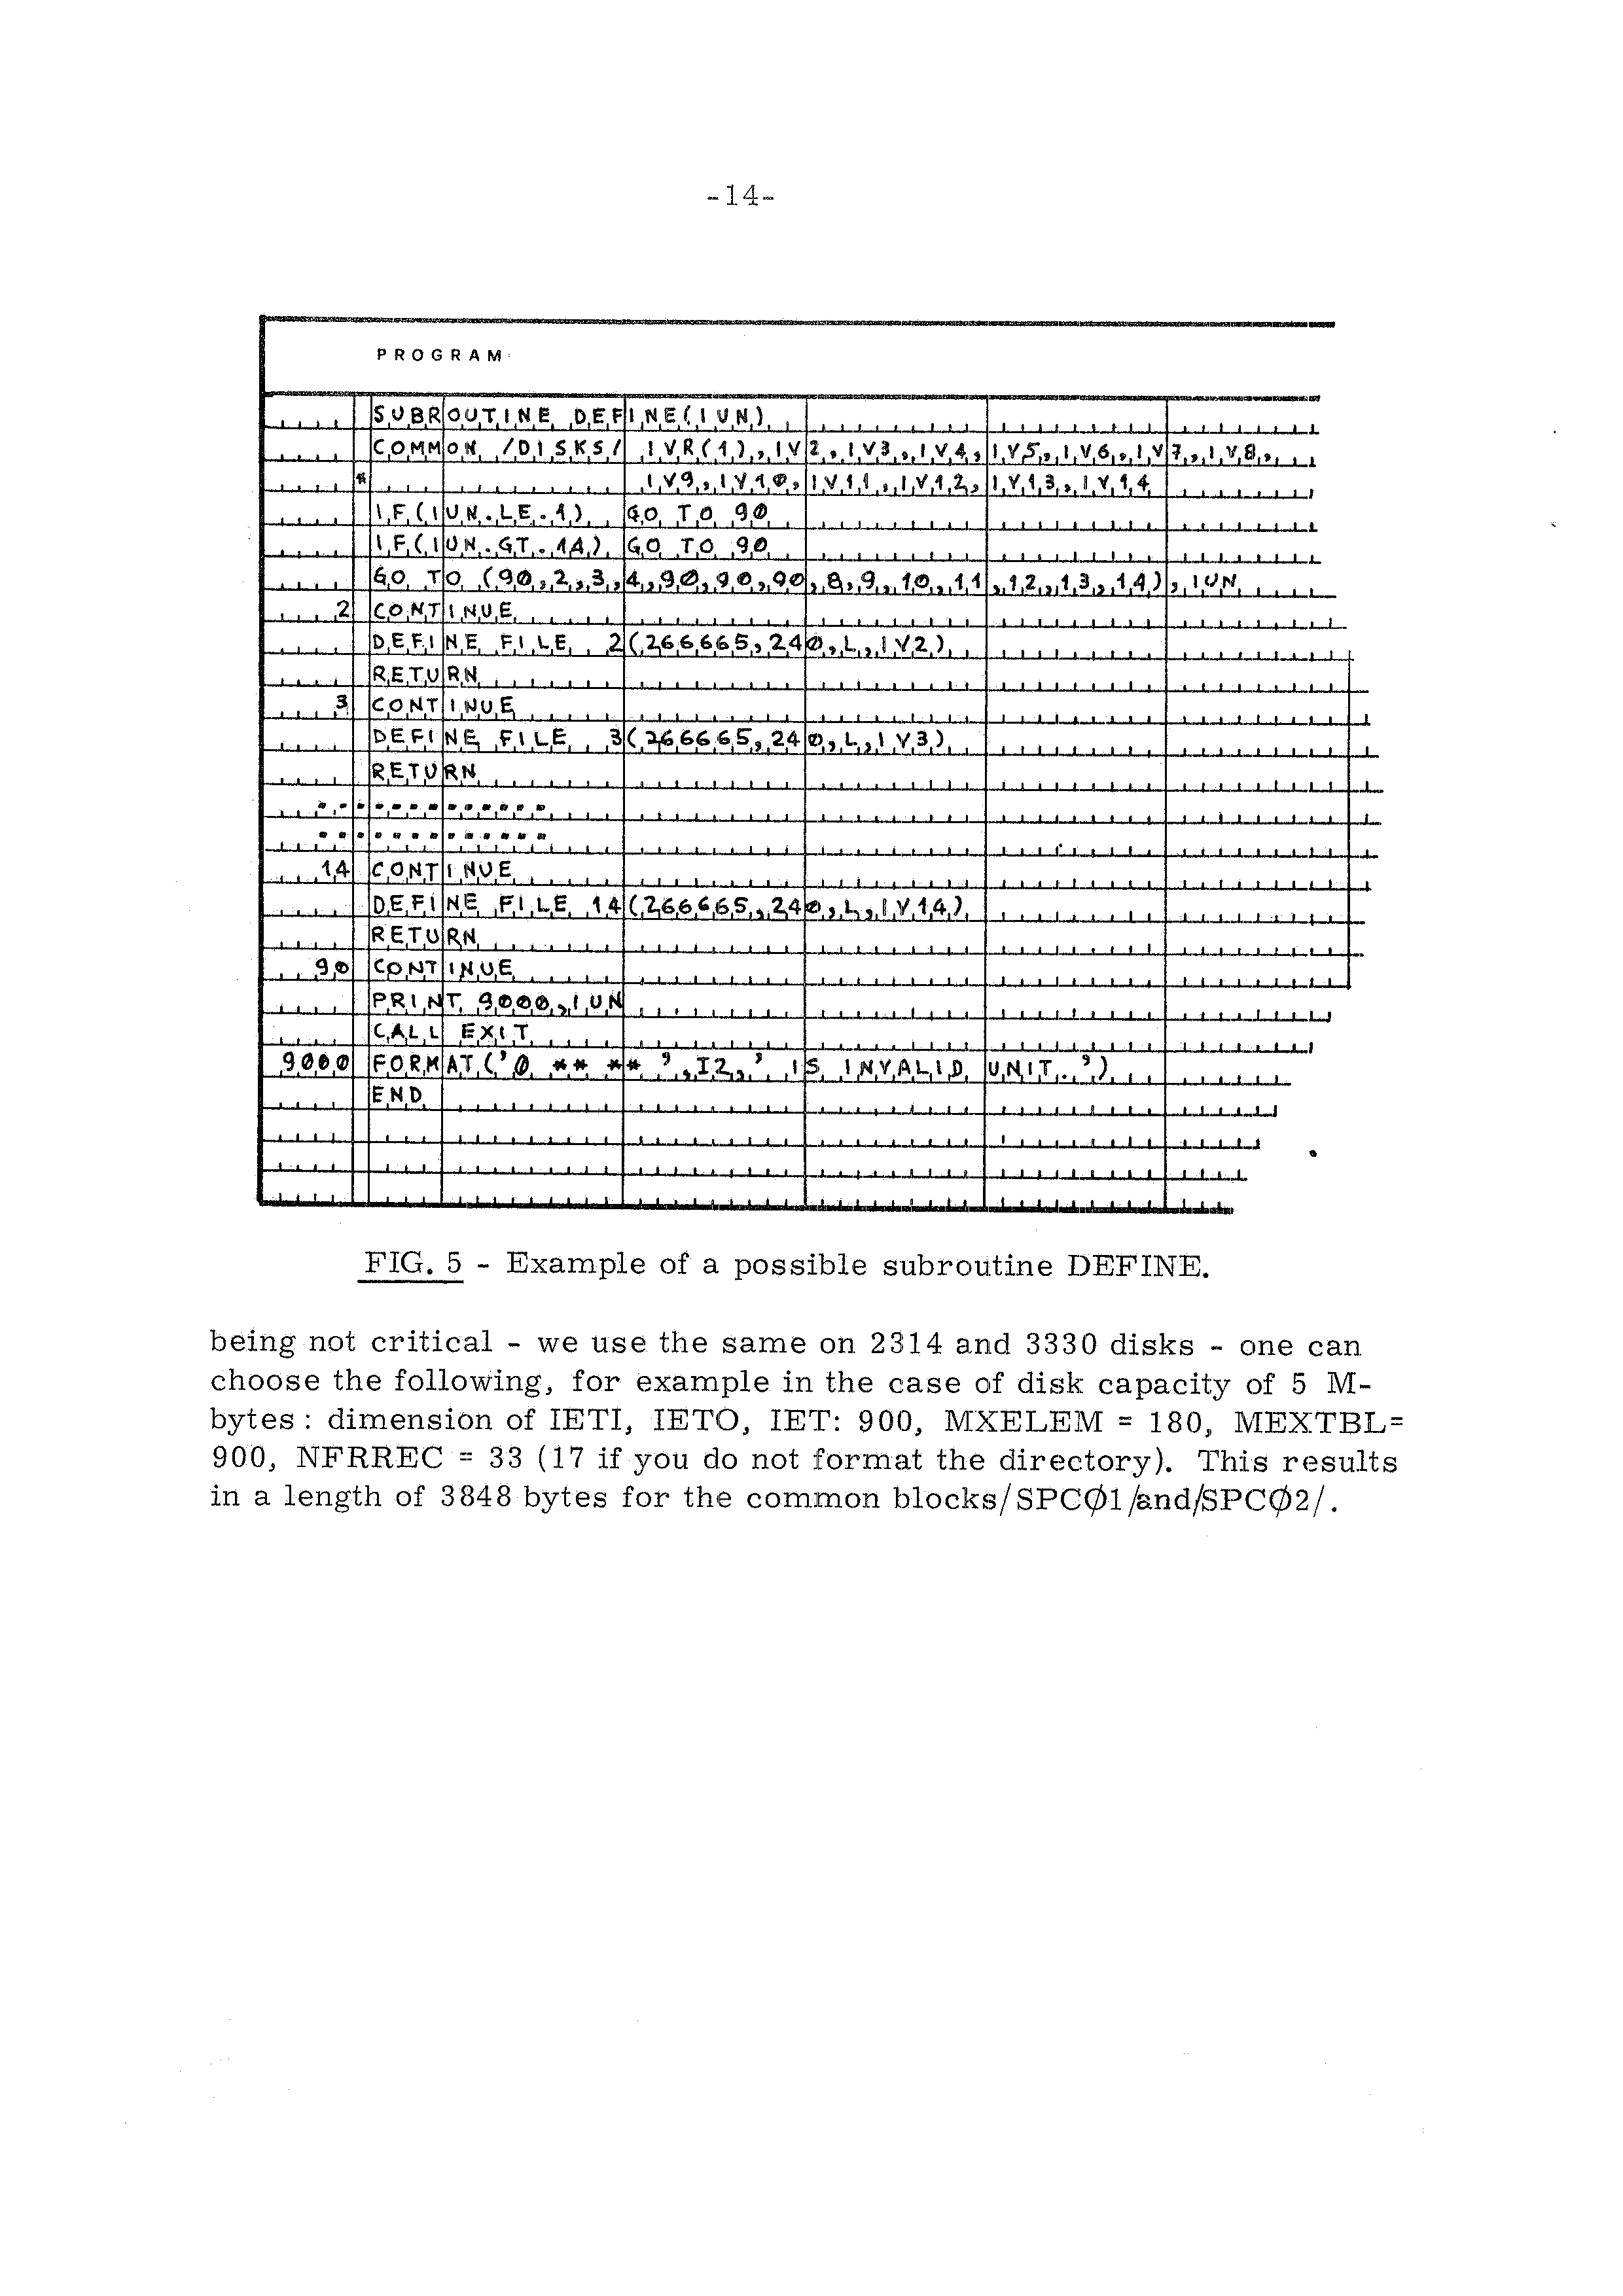 -14-
PROGRAM
SUBROUTINE DEFINE(IUN)
COMMON /DISKS/ IVR(1),IV2,IV3,IV4,IV5,IV6,IV7,IV8,
* IV9,IV10,IV11,IV12,IV13,IV14
IF(IUN.LE.1) GO TO 90
IF(IUN.GT.14) GO TO 90
GO TO (90,2,3,4,90,90,90,8,9,10,11,12,13,14),IUN
2 CONTINUE
DEFINE FILE 2(266665,240,L,IV2)
RETURN
3 CONTINUE
DEFINE FILE 3(266665,240,L,IV3)
RETURN
.............
.............
14 CONTINUE
DEFINE FILE 14(266665,240,L,IV14)
RETURN
90 CONTINUE
PRINT 9000,IUN
CALL EXIT
9000 FORMAT('0 ** ** ',I2,' IS INVALID UNIT.')
END
FIG. 5 - Example of a possible subroutine DEFINE.
being not critical - we use the same on 2314 and 3330 disks - one can
choose the following, for example in the case of disk capacity of 5 M-
bytes : dimension of IETI, IETO, IET: 900, MXELEM = 180, MEXTBL=
900, NFRREC = 33 (17 if you do not format the directory). This results
in a length of 3848 bytes for the common blocks/SPCØ1/and/SPCØ2/.